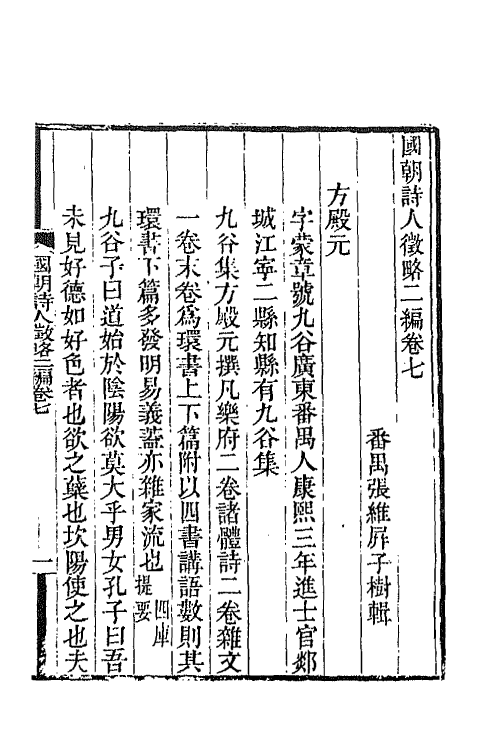 國朝詩人徵略二編卷七
番禺張維屏子樹輯
方殿元
字蒙章號九谷廣東番禺人康熙三年進士官郯
城江寧二縣知縣有九谷集
九谷集方殿元撰凡樂府二卷諸體詩二卷雜文
一卷末卷爲環書上下篇附以四書講語數則其
環書下篇多發明易義蓋亦雜家流也四庫提要
九谷子曰道始於陰陽欲莫大乎男女孔子曰吾
未見好德如好色者也欲之蘖也坎陽使之也夫
國朝詩人徵略二編卷七
一